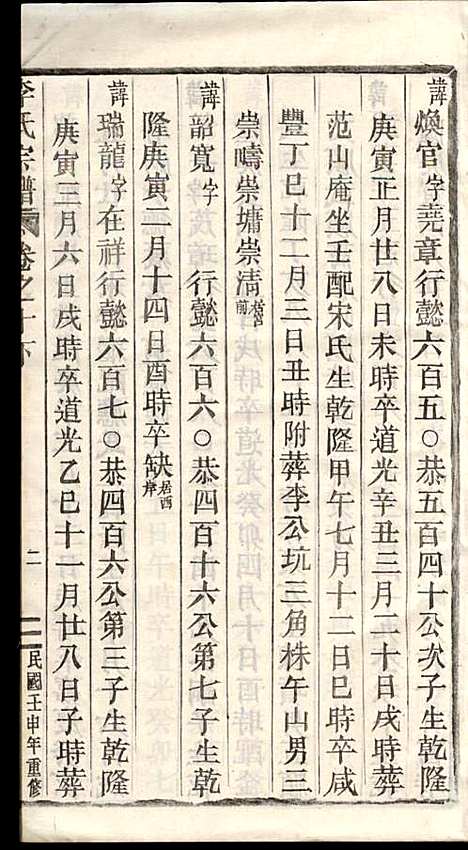 諱煥官字堯章行懿六百五○恭五百四十公次子生乾隆
庚寅正月廿八日未時卒道光辛丑三月二十日戌時葬
范山庵坐壬配宋氏生乾隆甲午七月十二日巳時卒咸
豐丁巳十二月三日丑時附葬李公坑三角株午山男三
崇疇崇墉崇清 居西庄前
諱韶寬字 行懿六百六○恭四百十六公第七子生乾
隆庚寅二月十四日酉時卒缺 居西岸
諱瑞龍字在祥行懿六百七○恭四百六公第三子生乾隆
庚寅三月六日戌時卒道光乙巳十一月廿八日子時葬
李氏宗譜 卷之十下 二 民國壬申年重修